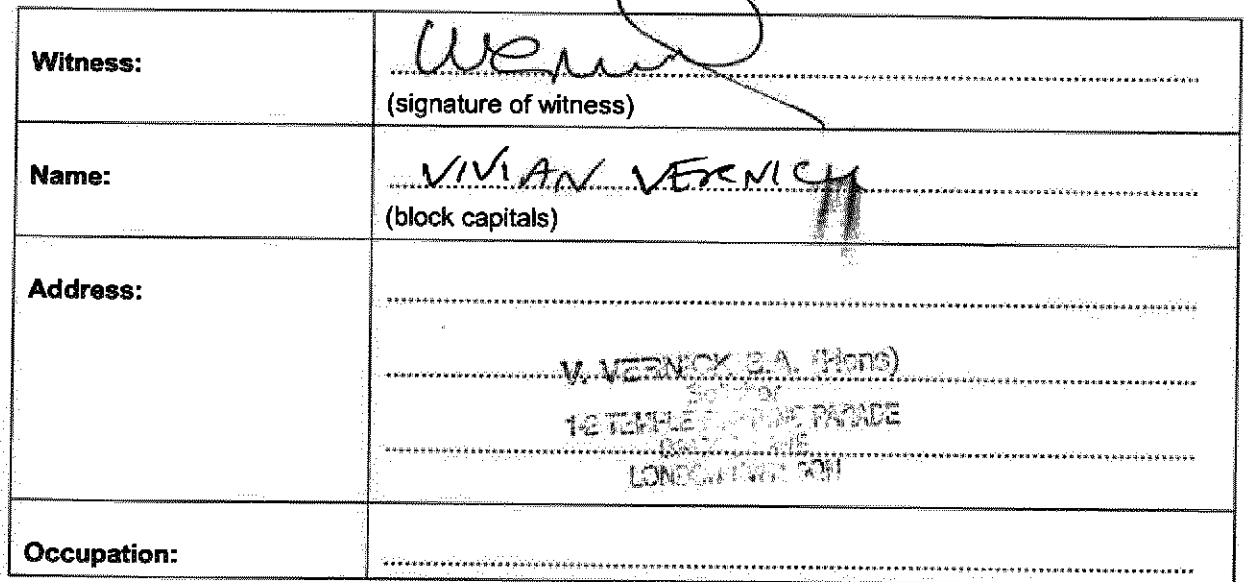 Witness:
(signature of witness)
Name: VIVIAN VERNICK
(block capitals)
Address:
V. VERNICK B.A. (Hons)
Solicitor
1-2 TEMPLE PARADE
LONDON
Occupation: